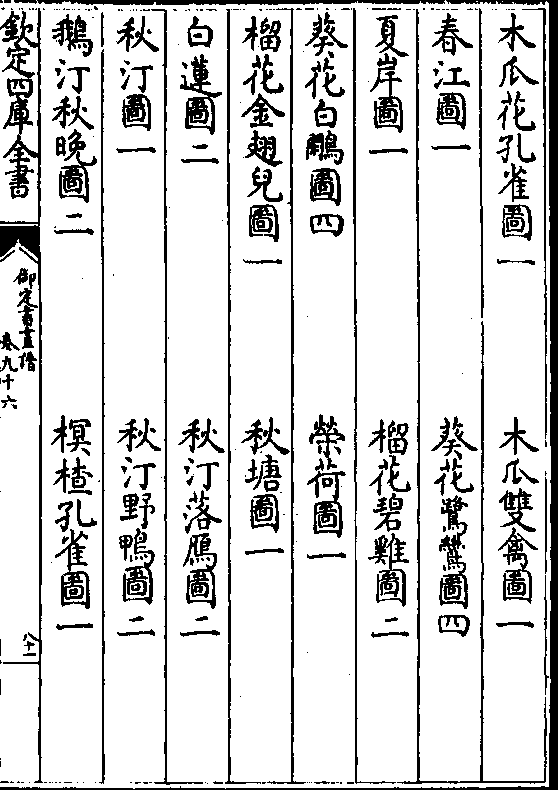 木瓜花孔雀圖一　木瓜雙禽圖一
春江圖一　葵花鷺鷥圖四
夏岸圖一　榴花碧雞圖二
葵花白鷴圖四　榮荷圖一
榴花金翅兒圖一　秋塘圖一
白蓮圖二　秋汀落鴈圖二
秋汀圖一　秋汀野鴨圖二
鵝汀秋晚圖二　榠楂孔雀圖一
欽定四庫全書
御定書畫譜
卷九十六